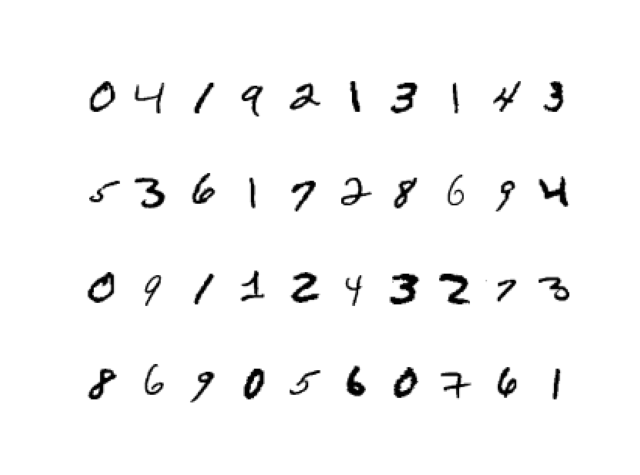 0 4 1 9 2 1 3 1 4 3
5 3 6 1 7 2 8 6 9 4
0 9 1 1 2 4 3 2 7 3
8 6 9 0 5 6 0 7 6 1